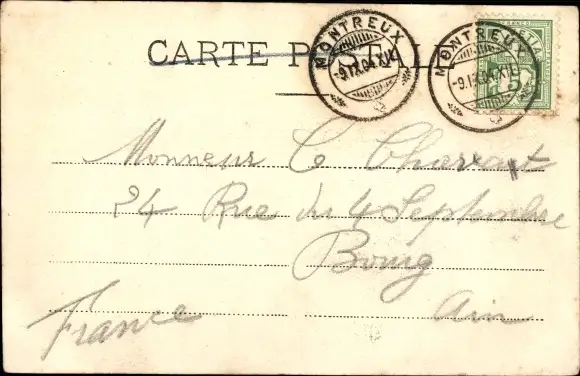 CARTE POSTALE
MONTREUX
-9.IX.04.XII
MONTREUX
-9.IX.04.XII
5
Monsieur C
24 Rue du 4 Septembre
Bourg
Ain
France